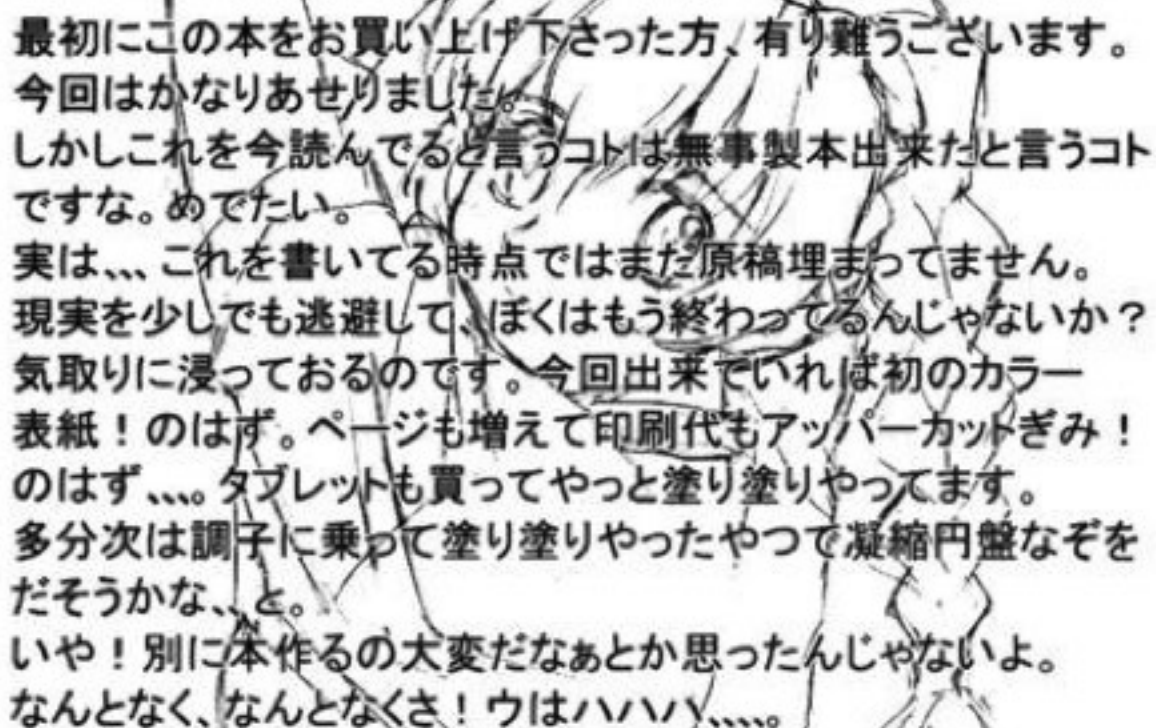 最初にこの本をお買い上げ下さった方、有り難うございます。
今回はかなりあせりました。
しかしこれを今読んでると言うコトは無事製本出来たと言うコト
ですな。めでたい。
実は、、、これを書いてる時点ではまだ原稿埋まってません。
現実を少しでも逃避して、ぼくはもう終わってるんじゃないか？
気取りに浸っておるのです。今回出来ていれば初のカラー
表紙！のはず。ページも増えて印刷代もアッパーカットぎみ！
のはず、、、。タブレットも買ってやっと塗り塗りやってます。
多分次は調子に乗って塗り塗りやったやつで凝縮円盤なぞを
だそうかな、、と。
いや！別に本作るの大変だなぁとか思ったんじゃないよ。
なんとなく、なんとなくさ！ウはハハハ、、、、。